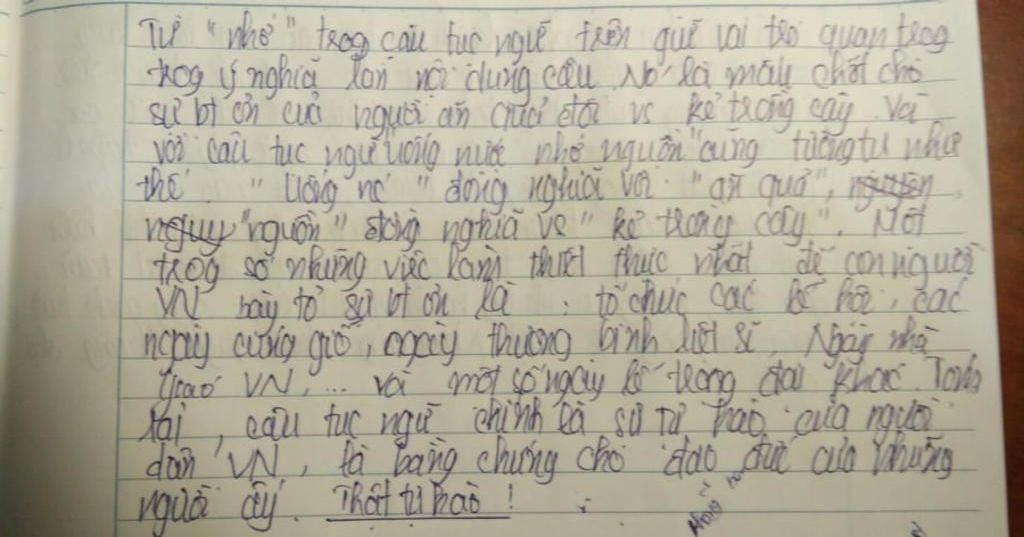 Từ "nhớ" trog câu tục ngữ trên giữ vai trò quan trog
trog ý nghĩa lẫn nội dung câu. Nó là mấu chốt cho
sự bt ơn của người ăn quả đối vs kẻ trồng cây. Và
với câu tục ngữ uống nước nhớ nguồn" cũng tương tự như
thế. "Uống nc" đồng nghĩa với "ăn quả",
"nguồn" đồng nghĩa vs "kẻ trồng cây". Một
trog số những việc làm thiết thực nhất để con người
VN bày tỏ sự bt ơn là : tổ chức các lễ hội, các
ngày cúng giỗ, ngày thương binh liệt sĩ, Ngày nhà
giáo VN, ... và một số ngày lễ trọng đại khác. Tóm
lại, câu tục ngữ chính là sự tự hào của người
dân VN, là bằng chứng cho đạo đức của những
người ấy. Thật tự hào !